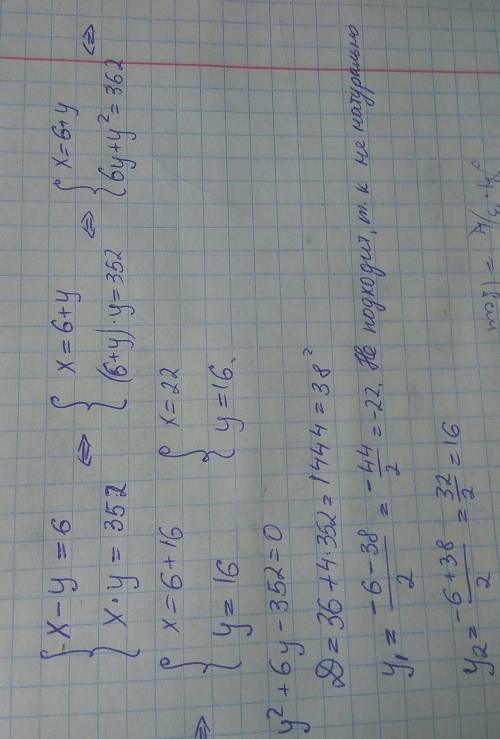 { x - y = 6 ⇔ { x = 6 + y ⇔ { x = 6 + y ⇔
{ x · y = 352 { (6 + y) · y = 352 { 6y + y² = 362
⇒ { x = 6 + 16 { x = 22
{ y = 16 { y = 16.
y² + 6y - 352 = 0
D = 36 + 4 · 352 = 1444 = 38²
y₁ = (-6 - 38)/2 = -44/2 = -22. Не подходит, т.к не натурально
y₂ = (-6 + 38)/2 = 32/2 = 16